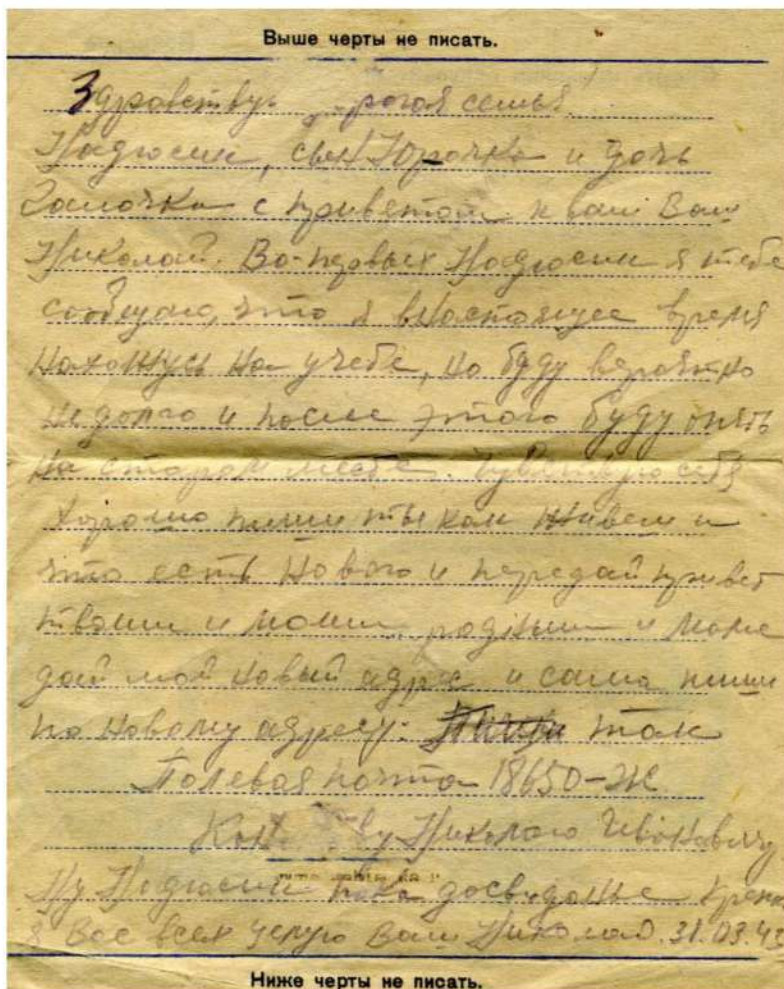 Выше черты не писать.
Здравствуй рогая семья!
Надюсик, сын Юрочка и дочь
Галочка с приветом к вам Ваш
Николай. Во-первых Надюсик я тебе
сообщаю, что я внастоящее время
нахожусь на учебе, но буду вероятно
недолго и после этого буду опять
на старом месте. Чувствую себя
хорошо пиши ты как живеш и
что есть нового и передай привет
твоим и моим родным и маме
дай мой новый адрес и сама пиши
по новому адресу: так
Полевая почта 18650-Ж
Николаю Ивановичу
Ну Надюсик пока досвиданье
я Вас всех целую Ваш Николай. 31.03.43
Ниже черты не писать.